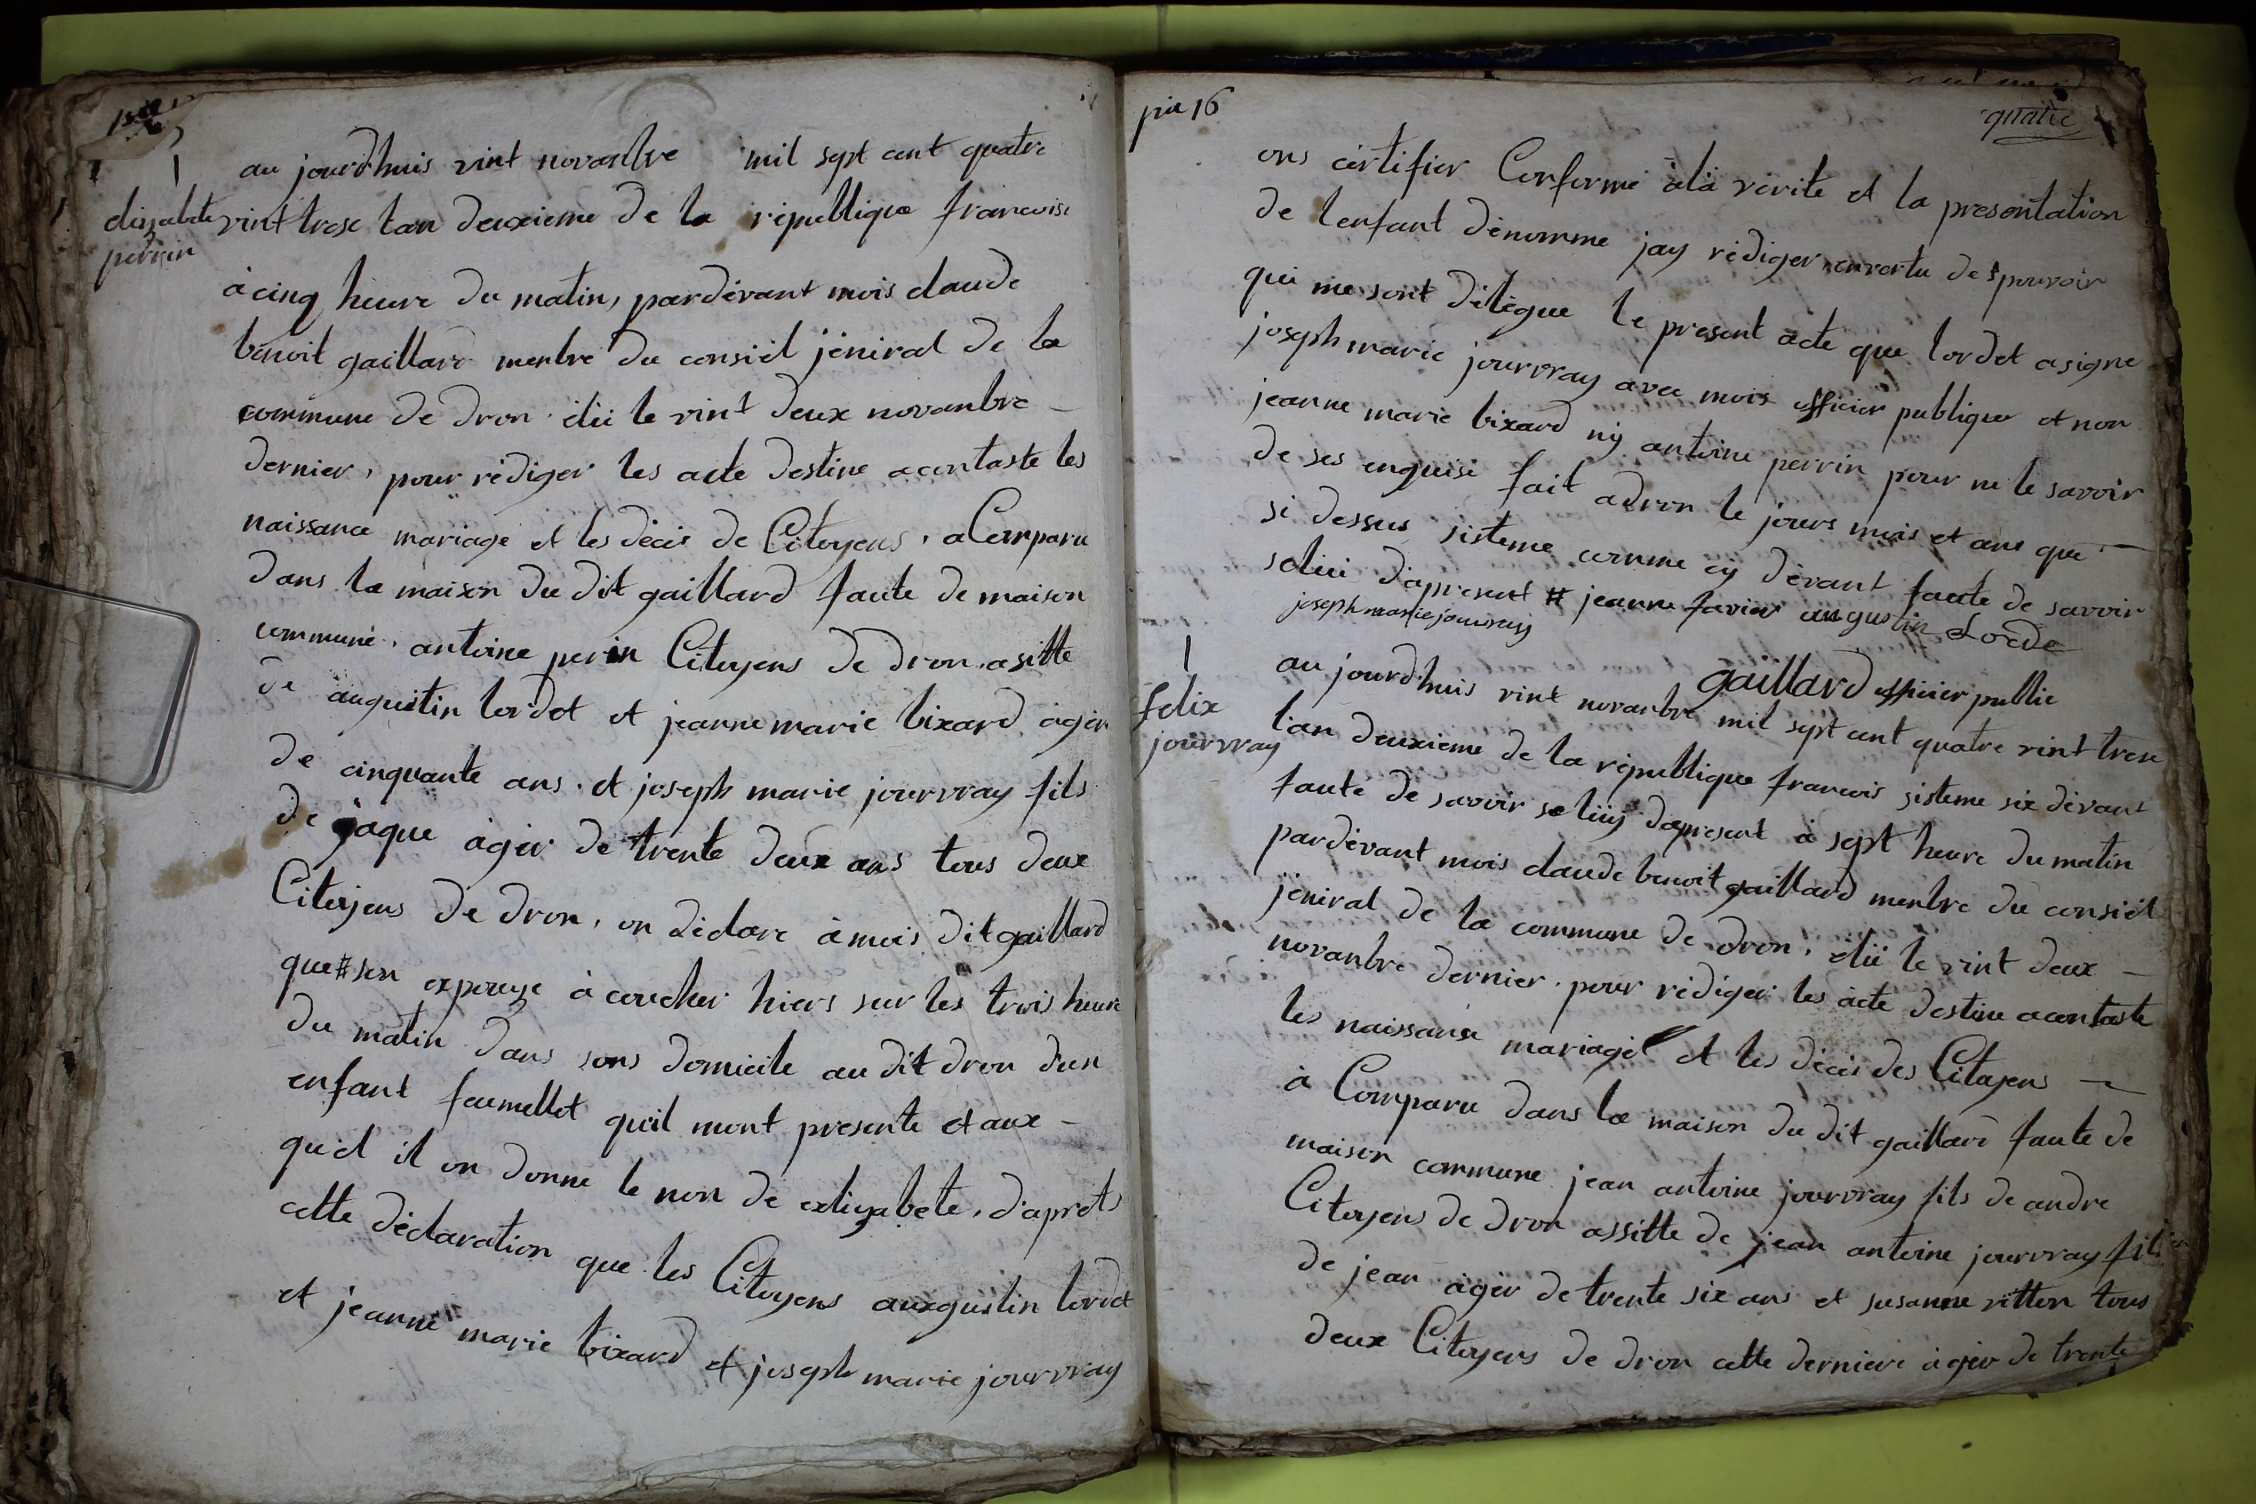 1
au jourdhuis vint novanbre mil sept cent quatre
elizabete
perrin
vint trese lan deuxieme de la republique francoise
à cinq heure du matin, pardevant mois claude
benoit gaillard menbre du consiel jéniral de la
commune de dron. élü le vint deux novanbre
dernier, pour rédiger les acte destine acontaste les
naissance mariage et les décès de Citoyens, a Comparu
dans la maison du dit gaillard faute de maison
commune. antoine perin Citoyens de dron. asitte
de augustin lordet et jeanne marie bixard àgér
de cinquante ans. et joseph marie jourvray fils
de jaque àgér de trente deux ans tous deux
Citoyens de dron, on déclare à mois dit gaillard
que # son expouse à coucher hiers sur les trois heure
du matin dans sons domicile au dit dron dun
enfant foumellot quil mont presente et aux
quel il on donne le non de elizabete, daprets
cette déclaration que les Citoyens auxgustin lordet
et jeanne marie bixard et joseph marie jourvray
pre 16
quatre
ons certifier Conforme à la vérite et la presontation
de lenfant dénomme jay rédiger en vertu des pouvoir
qui me sont délégue le present acte que lordet a signe
joseph marie jourvray avec mois officier publique et non
jeanne marie bixard ny antoine perrin pour ne le savoir
de ses enquisé fait a dron le jours mois et ans que
si dessus sisteme comme cy dévant faute de savoir
selui dapresent # jeanne favier augustin Lorde
joseph marie jourvray
gaillard officier public
1
felix
jourvray
au jourdhuis vint novanbre mil sept cent quatre vint trese
lan deuxieme de la république francois sisteme six dévant
faute de savoir se lüy dapresent à sept heure du matin
pardévant mois claude benoit gaillard menbre du consiél
jéniral de la commune de dron, élü le vint deux
novanbre dernier. pour rédiger les acte destine acontaste
les naissance mariage et les décès des Citoyens
à Comparu dans la maison du dit gaillard faute de
maison commune jean antoine jourvray fils de andre
Citoyens de dron assitte de jean antoine jourvray fils
de jean àgér de trente six ans et susanne vitton tous
deux Citoyens de dron cette derniere àgér de trente